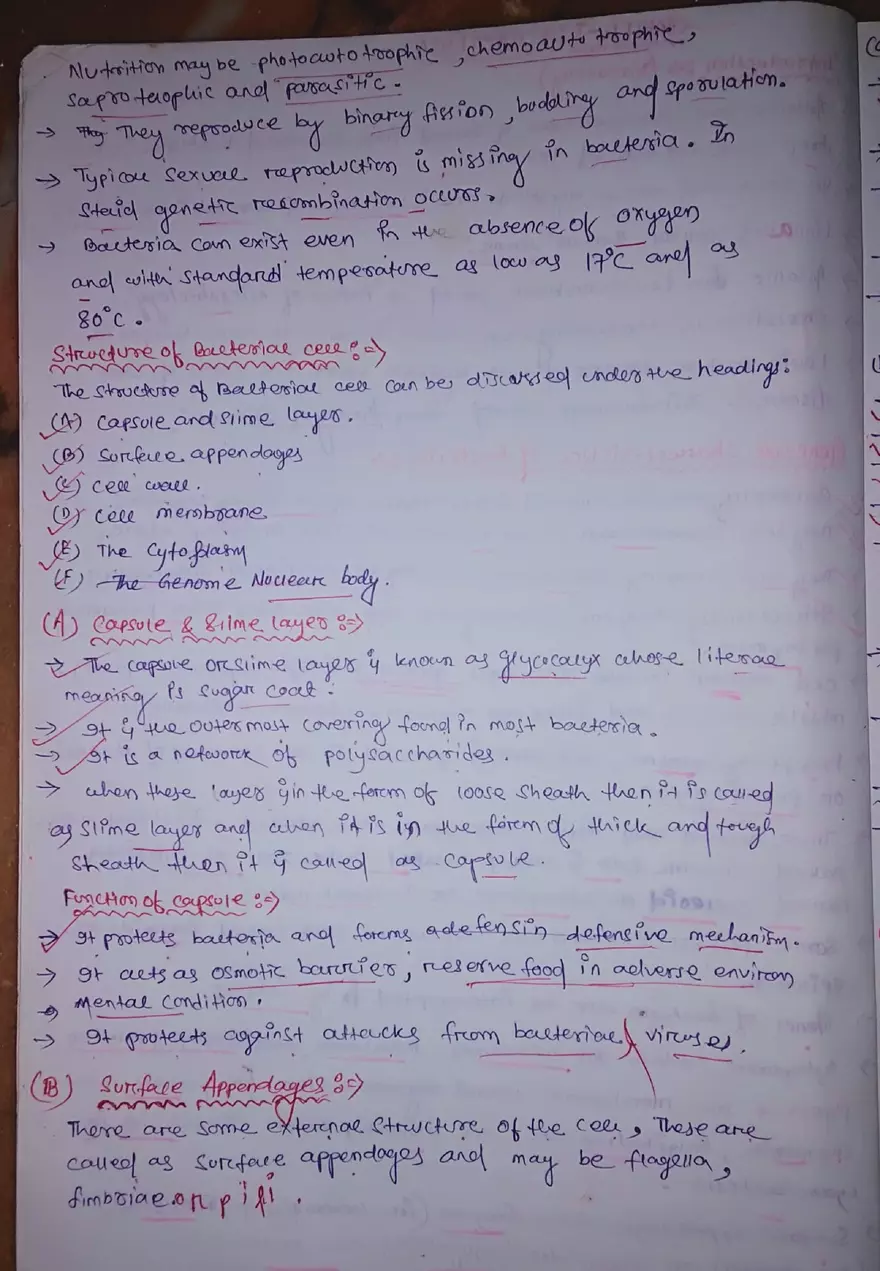 Nutrition may be photoautotroophic, chemoautotrophic,
saprotraophic and parasitic.
→ They reproduce by binary fission, budding and sporulation.
→ Typical sexual reproduction is missing in bacteria. In
Staid genetic recombination occurs.
→ Bacteria can exist even in the absence of oxygen
and with standard temperature as low as 17°C and as
80°C.
Structure of Bacterial cell :⇒
The structure of Bacterial cell can be discussed under the headings:
(A) Capsule and slime layer.
(B) Surface appendages
(C) Cell wall.
(D) Cell membrane
(E) The Cytoplasm
(F) The Genome Nuclear body.
(A) Capsule & Slime layer :⇒
→ The capsule or slime layer is known as glycocalyx whose literal
meaning is sugar coat.
→ It is the outermost covering found in most bacteria.
→ It is a network of polysaccharides.
→ when these layer is in the form of loose sheath then it is called
as slime layer and when it is in the form of thick and tough
sheath then it is called as capsule.
Function of capsule :⇒
→ It protects bacteria and forms a defensin defensive mechanism.
→ It acts as osmotic barrier, reserve food in adverse environ
→ Mental condition.
→ It protects against attacks from bacterial viruses.
(B) Surface Appendages :⇒
There are some external structure of the cell, These are
called as surface appendages and may be flagella,
fimbriae or pili.